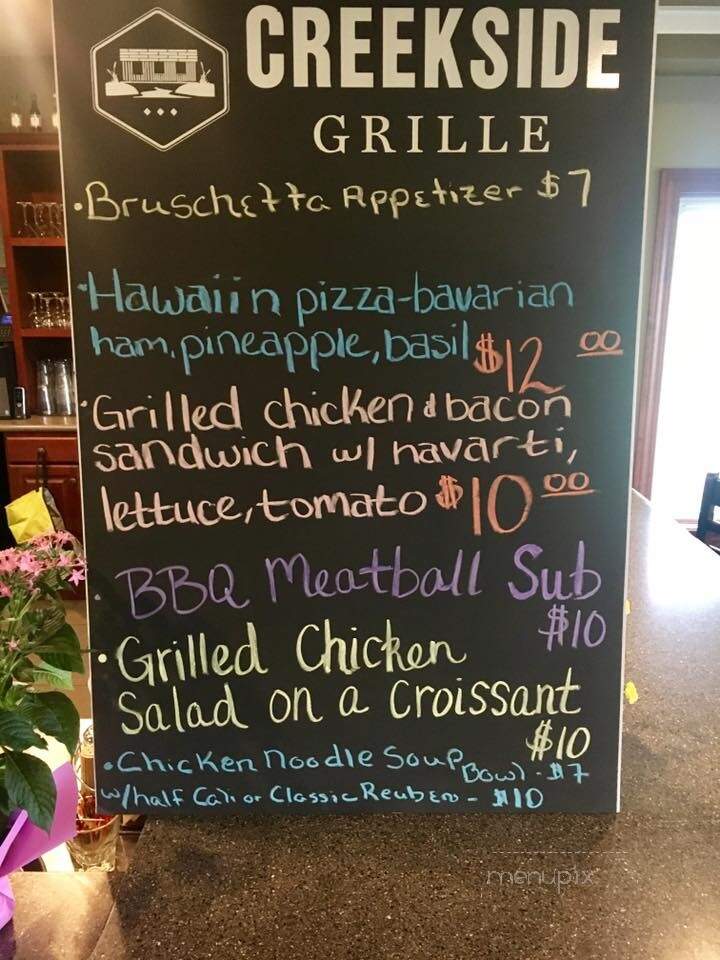 CREEKSIDE
GRILLE
•Bruschetta Appetizer $7
•Hawaiin pizza-bavarian
ham, pineapple, basil $12 00
•Grilled chicken & bacon
sandwich w/ havarti,
lettuce, tomato $10 00
• BBQ Meatball Sub
$10
•Grilled Chicken
Salad on a Croissant
$10
•Chicken Noodle Soup Bowl - $7
w/half Cali or Classic Reuben - $10
menupix